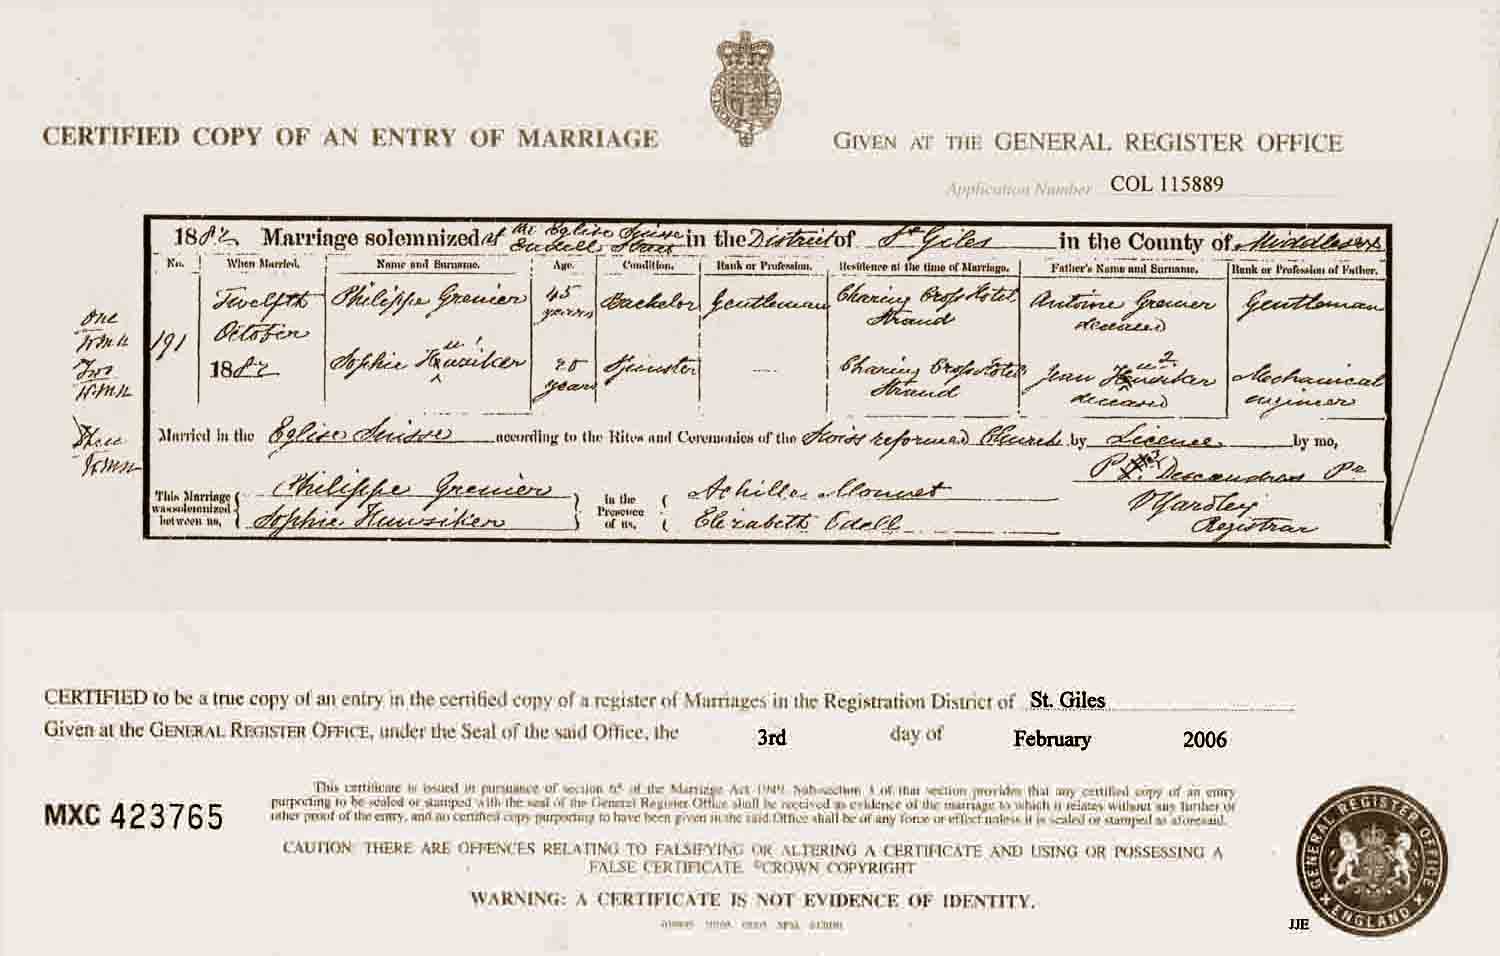 CERTIFIED COPY OF AN ENTRY OF MARRIAGE
GIVEN AT THE GENERAL REGISTER OFFICE
Application Number COL 115889
1882 Marriage solemnized at the Eglise Suisse Endell Street in the District of St Giles in the County of Middlesex
No. When Married. Name and Surname. Age. Condition. Rank or Profession. Residence at the time of Marriage. Father's Name and Surname. Rank or Profession of Father.
191 Twelfth October 1882
Philippe Grenier 45 years Bachelor Gentleman Charing Cross Hotel Strand Antoine Grenier deceased Gentleman
Sophie 20 years Spinster Charing Cross Hotel Strand Jean deceased Mechanical engineer
One
Two
Three
Married in the Eglise Suisse according to the Rites and Ceremonies of the Swiss reformed Church by Licence by me,
This Marriage was solemnized between us, Philippe Grenier
Sophie Hunsiker
In the Presence of us, Achille Monnet
Elizabeth Edell
Registrar
CERTIFIED to be a true copy of an entry in the certified copy of a register of Marriages in the Registration District of St. Giles
Given at the GENERAL REGISTER OFFICE, under the Seal of the said Office, the 3rd day of February 2006
MXC 423765
This certificate is issued in pursuance of section 65 of the Marriage Act 1949. Sub-section 3 of that section provides that any certified copy of an entry
purporting to be sealed or stamped with the seal of the General Register Office shall be received as evidence of the marriage to which it relates without any further or
other proof of the entry, and no certified copy purporting to have been given in the said Office shall be of any force or effect unless it is sealed or stamped as aforesaid.
CAUTION: THERE ARE OFFENCES RELATING TO FALSIFYING OR ALTERING A CERTIFICATE AND USING OR POSSESSING A
FALSE CERTIFICATE. ©CROWN COPYRIGHT
WARNING: A CERTIFICATE IS NOT EVIDENCE OF IDENTITY.
GENERAL REGISTER OFFICE
ENGLAND
JJE